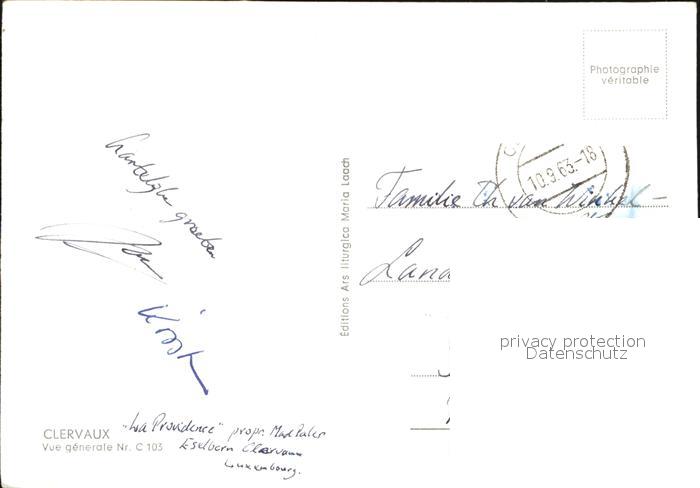 Photographie
véritable
10.9.63-18
Hartelijke groeten
Familie Th van Winkel-
Editions Ars liturgica Maria Laach
privacy protection
Datenschutz
CLERVAUX "La Providence" propr.
Vue génerale Nr. C 103 Eselborn Clervaux
Luxembourg.